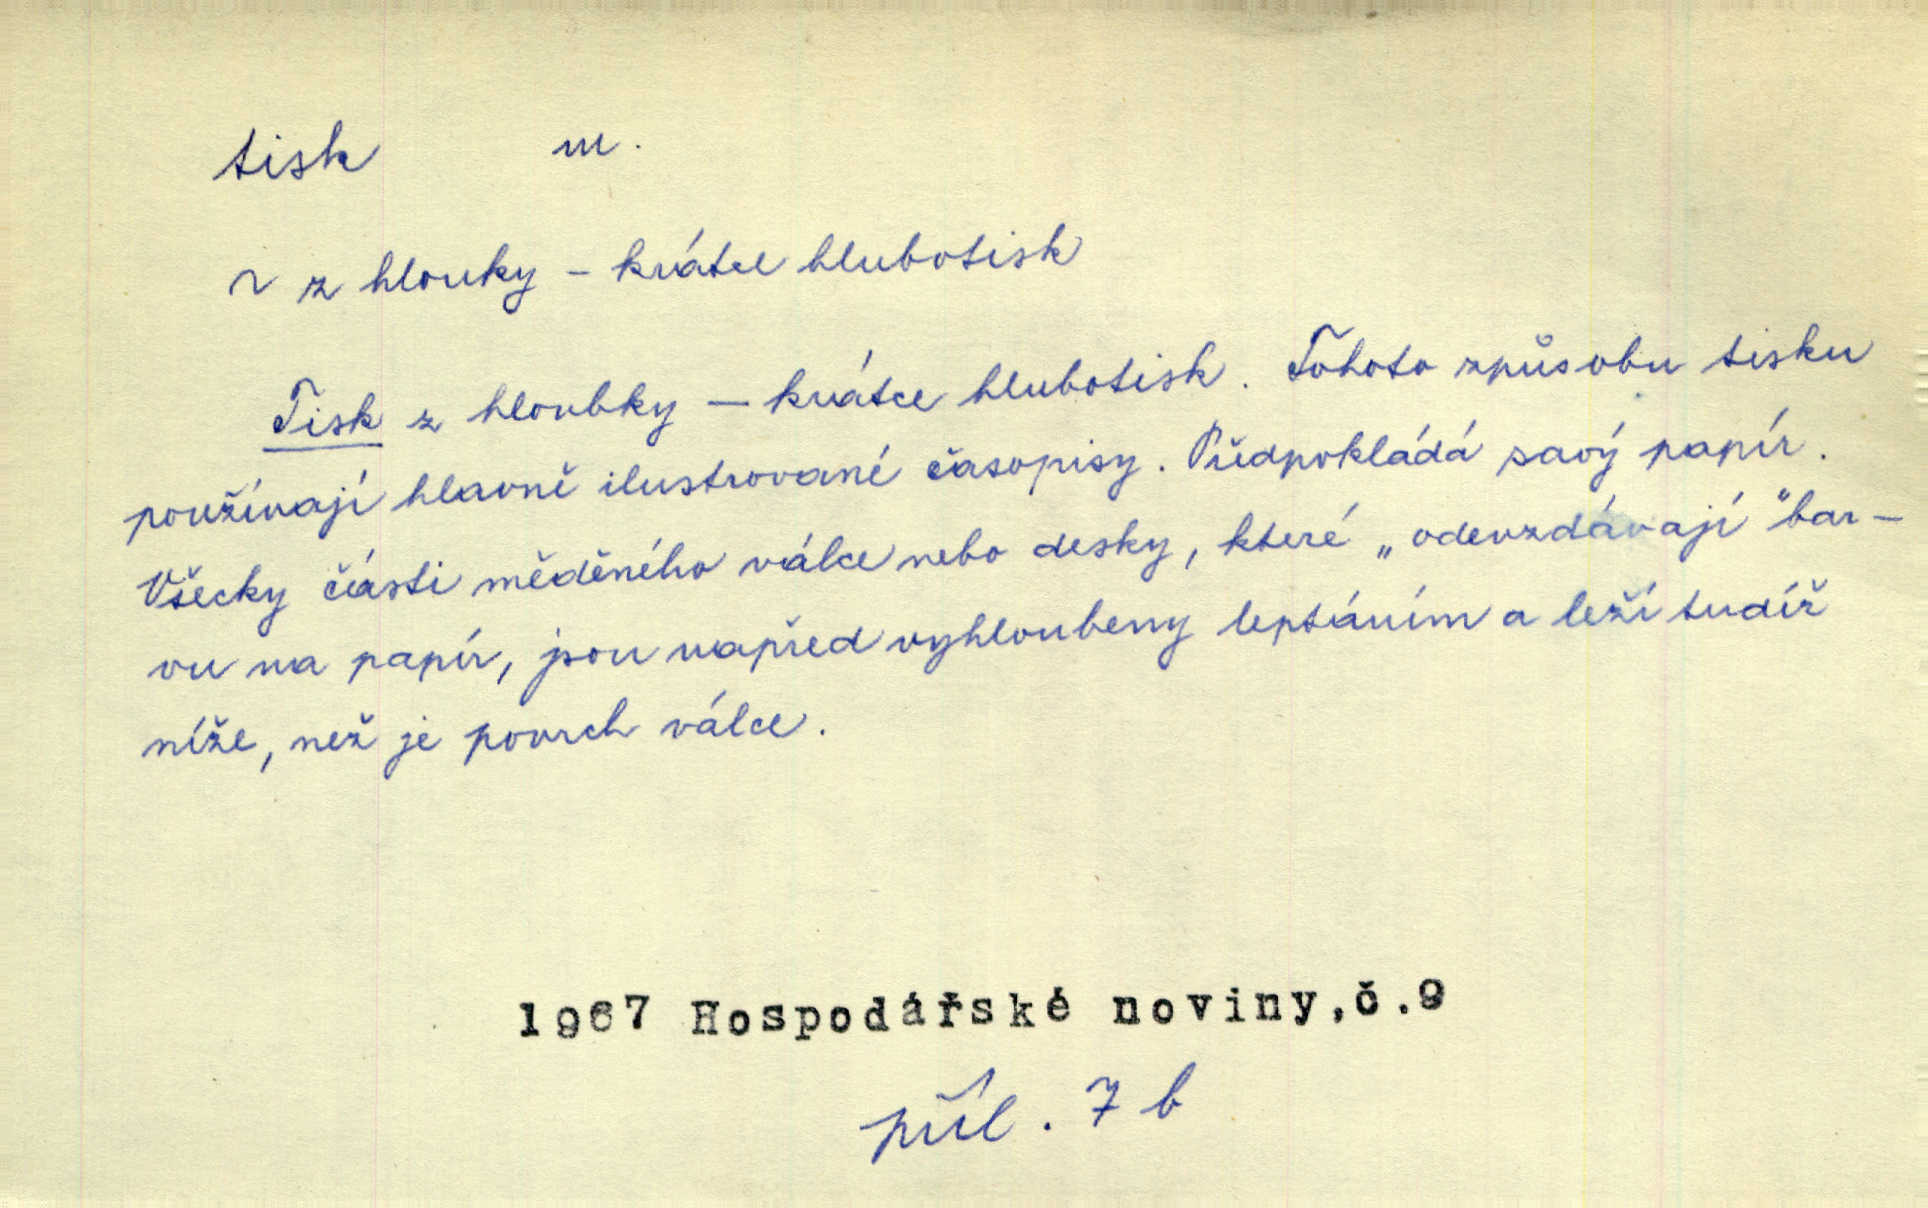 tisk m.
~ z hlouky – krátce hlubotisk
Tisk z hloubky – krátce hlubotisk. Tohoto způsobu tisku
používají hlavně ilustrované časopisy. Předpokládá savý papír.
Všecky části měděného válce nebo desky, které „odevzdávají" bar-
vu na papír, jsou napřed vyhloubeny leptáním a leží tudíž
níže, než je povrch válce.
1967 Hospodářské noviny,č.9
příl. 7 b